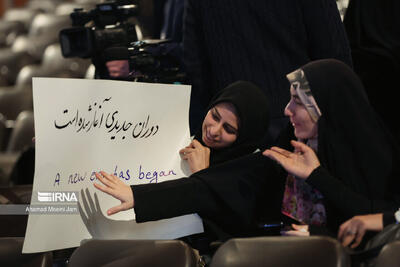 دوران جدیدی آغاز شده است
A new era has began
IRNA
Ahmad Moeini Jam